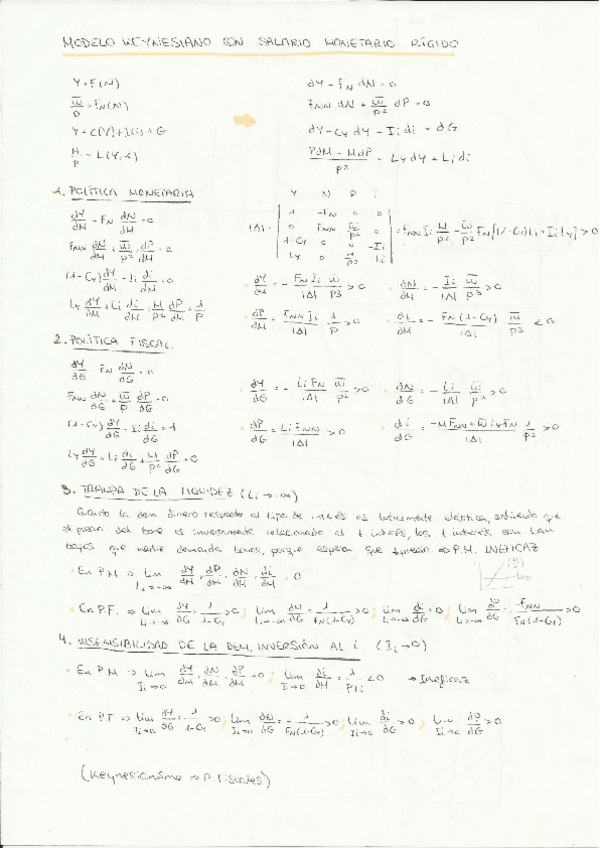 MODELO KEYNESIANO CON SALARIO MONETARIO RÍGIDO
Y = F(N)
dY - F_N dN = 0
w̄/P = F_N(N)
F_NN dN + w̄/P² dP = 0
Y = C(Y) + I(i) + G
dY - C_Y dY - I_i di = dG
M/P = L(Y, i)
(PdM - MdP)/P² = L_Y dY + L_i di
1. POLÍTICA MONETARIA
Y N P i
dY/dM - F_N dN/dM = 0
1 -F_N 0 0
F_NN dN/dM + w̄/P² dP/dM = 0
0 F_NN w̄/P² 0
|Δ| = = F_NN I_i M/P² - w̄/P² F_N [(1-C_Y) L_i + I_i L_Y] > 0
(1-C_Y) dY/dM - I_i di/dM = 0
1-C_Y 0 0 -I_i
L_Y 0 M/P² L_i
L_Y dY/dM + L_i di/dM + M/P² dP/dM = 1/P
· dY/dM = - F_N I_i/|Δ| w̄/P³ > 0
· dN/dM = - I_i/|Δ| w̄/P³ > 0
· dP/dM = F_NN I_i/|Δ| 1/P > 0
· di/dM = - F_N (1-C_Y)/|Δ| w̄/P³ < 0
2. POLÍTICA FISCAL
dY/dG - F_N dN/dG = 0
F_NN dN/dG + w̄/P dP/dG = 0
(1-C_Y) dY/dG - I_i di/dG = 1
L_Y dY/dG + L_i di/dG + M/P² dP/dG = 0
· dY/dG = - L_i F_N/|Δ| w̄/P² > 0
· dN/dG = - L_i/|Δ| w̄/P² > 0
· dP/dG = L_i F_NN/|Δ| > 0
· di/dG = (-M F_NN + w̄ L_Y F_N)/|Δ| 1/P² > 0
3. TRAMPA DE LA LIQUIDEZ (L_i → -∞)
Cuando la dem. dinero respecto al tipo de interés es totalmente elástica, sabiendo que
el precio del bono es inversamente relacionado al t interés, los t interés son tan
bajos que nadie demanda bonos, porque esperan que ⇒ P.M. INEFICAZ
· En P.M. ⇒ lim L_i→-∞ dY/dM, dP/dM, dN/dM, di/dM = 0
· En P.F. ⇒ lim L_i→-∞ dY/dG = 1/(1-C_Y) > 0; lim L_i→-∞ dN/dG = 1/(F_N(1-C_Y)) > 0; lim L_i→-∞ di/dG = 0; lim L_i→-∞ = - F_NN/(F_N(1-C_Y)) > 0
4. INSENSIBILIDAD DE LA DEM. INVERSIÓN AL i (I_i → 0)
· En P.M. ⇒ lim I_i→0 dY/dM, dN/dM, dP/dM = 0; lim I_i→0 di/dM = 1/(P L_i) < 0 → Ineficaz
· En P.F ⇒ lim I_i→0 dY/dG = 1/(1-C_Y) > 0; lim I_i→0 dN/dG = 1/(F_N(1-C_Y)) > 0; lim I_i→0 di/dG > 0; lim I_i→0 dP/dG > 0
(Keynesianismo ⇒ P. Fiscales)